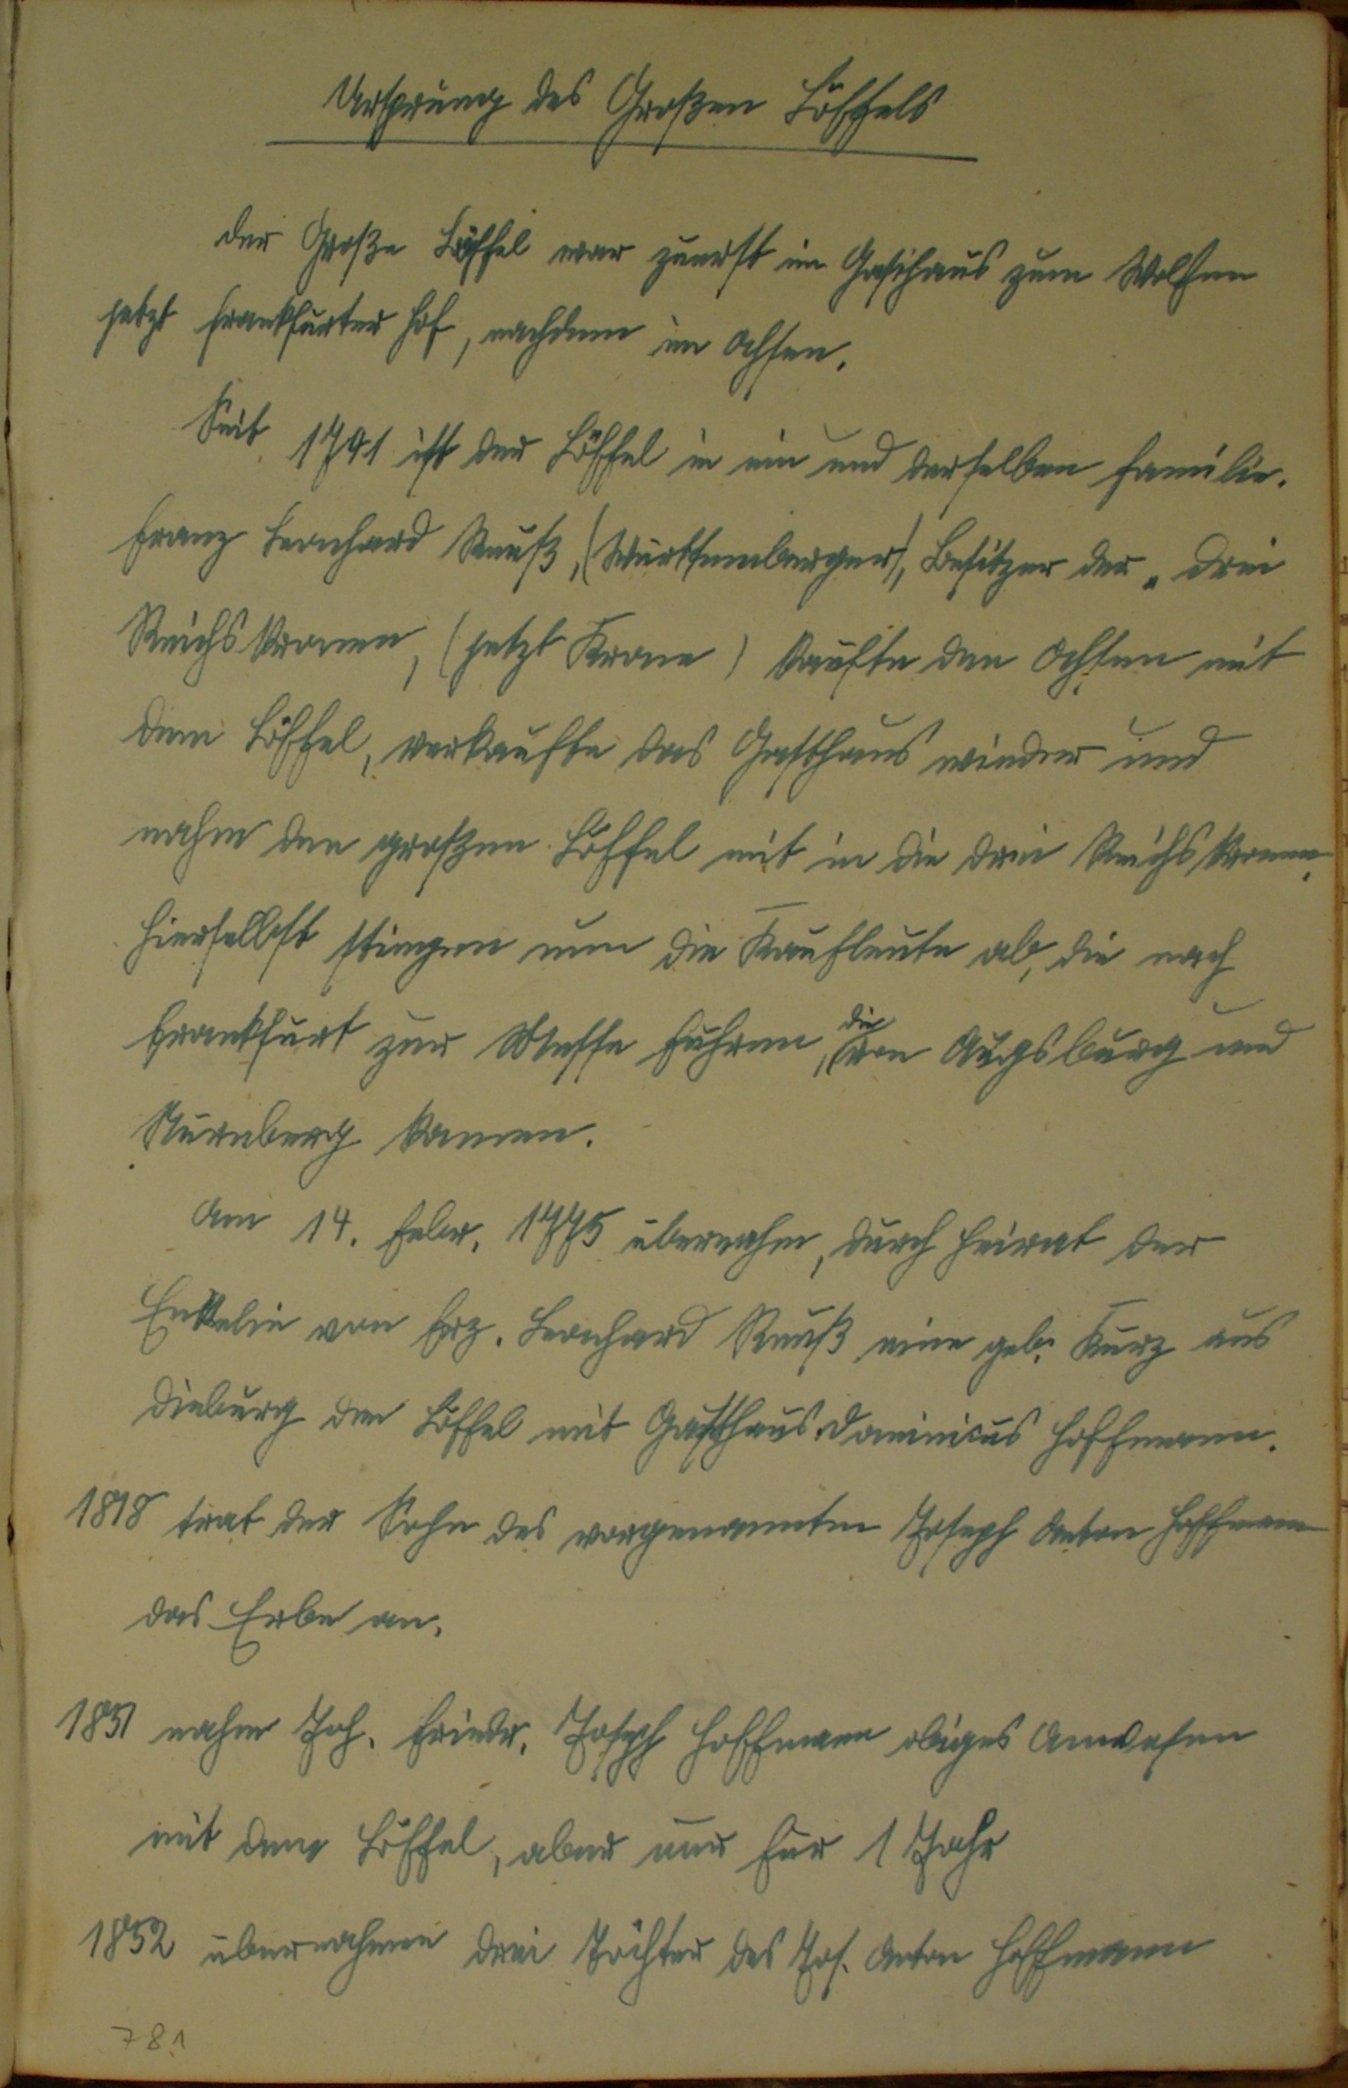 Ursprung des Großen Löffels
Der Große Löffel war zuerst im Gasthaus zum Wolfen
jetzt Frankfurter Hof, nachdem im Ochsen.
Seit 1741 ist der Löffel in ein und derselben Familie.
Franz Leonhard Reuß, (Württemberger), Besitzer der „Drei
Reichskronen, (jetzt Krone) kaufte den Ochsen mit
dem Löffel, verkaufte das Gasthaus wieder und
nahm den großen Löffel mit in die drei Reichskronen.
Hierselbst stiegen nun die Kaufleute ab, die nach
Frankfurt zur Messe fuhren, die von Augsburg und
Nürnberg kamen.
Am 14. Febr. 1775 übernahm, durch Heirat der
Enkelin von Frz. Leonhard Reuß eine geb. Kurz aus
Dieburg den Löffel mit Gasthaus Dominicus Hoffmann.
1818 trat der Sohn des vorgenannten Joseph Anton Hoffmann
das Erbe an.
1851 nahm Joh. Friedr. Joseph Hoffmann obiges Anwesen
mit dem Löffel, aber nur für 1 Jahr
1852 übernahmen drei Töchter des Jos. Anton Hoffmann
781